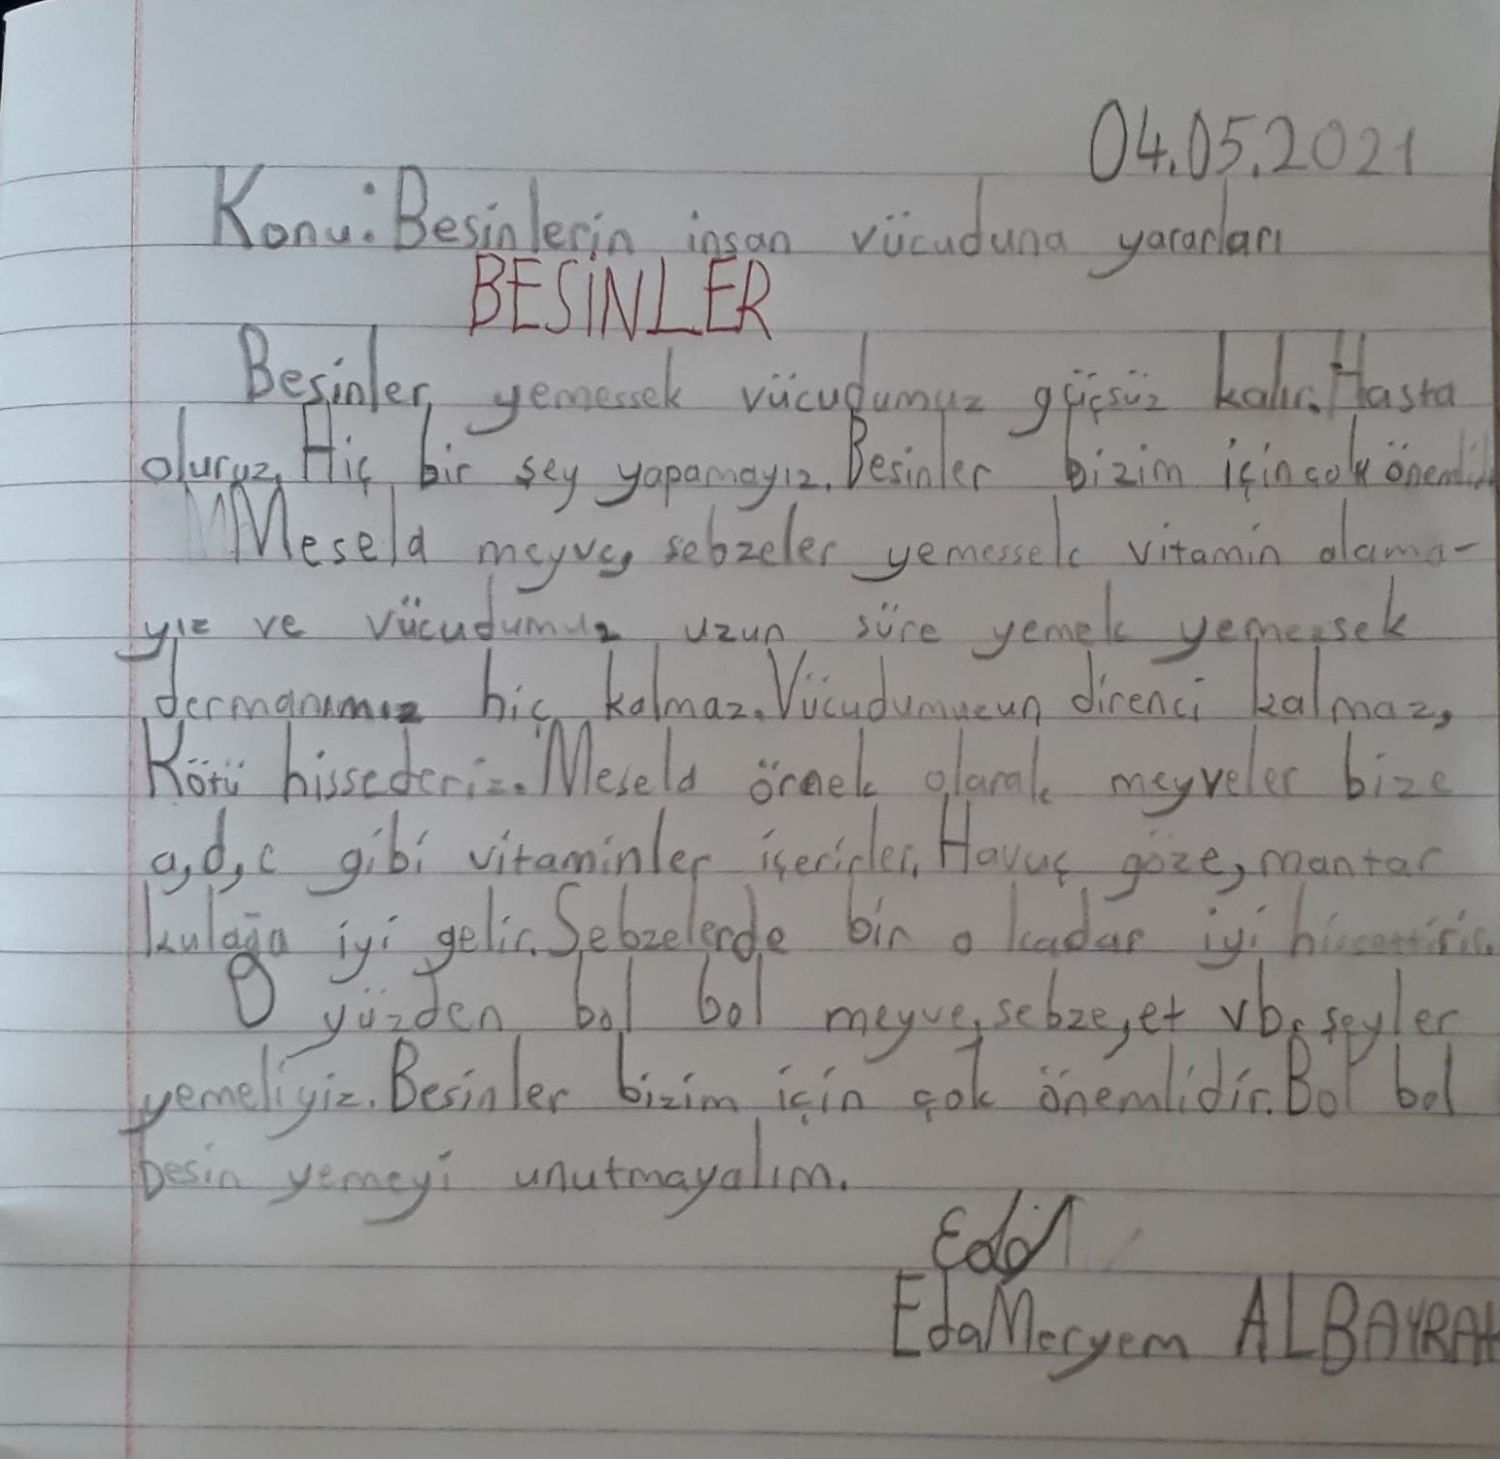 04.05.2021
Konu: Besinlerin insan vücuduna yararları
BESİNLER
Besinler yemessek vücudumuz güçsüz kalır. Hasta
oluruz. Hiç bir şey yapamayız. Besinler bizim için çok önemlidir
Mesela meyve, sebzeler yemessek vitamin alama-
yız ve vücudumuz uzun süre yemek yemezsek
dermanımız hiç kalmaz. Vücudumuzun direnci kalmaz,
Kötü hissederiz. Mesela örnek olarak meyveler bize
a,d,c gibi vitaminler içerirler. Havuç göze, mantar
kulağa iyi gelir. Sebzelerde bir o kadar iyi hissettirir.
O yüzden bol bol meyve, sebze, et vb. şeyler
yemeliyiz. Besinler bizim için çok önemlidir. Bol bol
besin yemeyi unutmayalım.
Eda
Eda Meryem ALBAYRAK